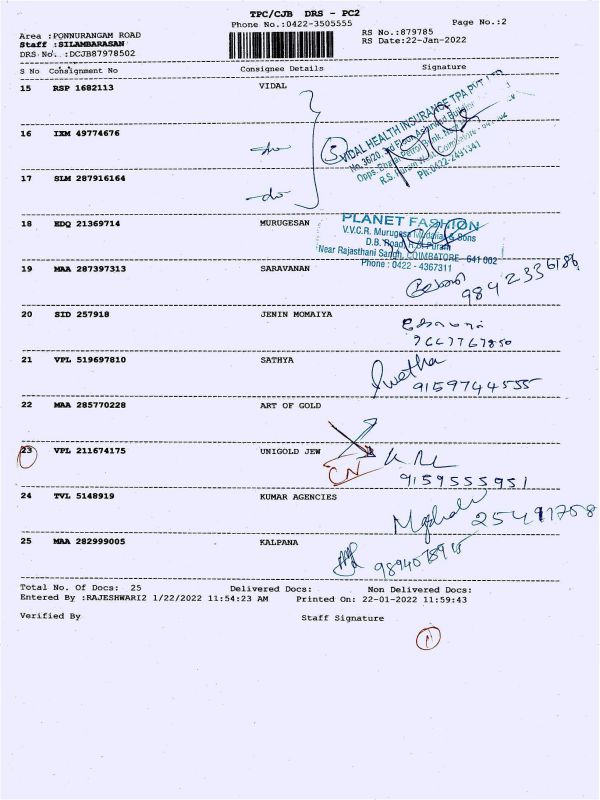 TPC/CJB DRS - PC2
Phone No.:0422-3505555 Page No.:2
Area :PONNURANGAM ROAD RS No.:879785
Staff :SILAMBARASAN RS Date:22-Jan-2022
DRS No. :DCJB87978502
S No Consignment No Consignee Details Signature
15 RSP 1682113 VIDAL
VIDAL HEALTH INSURANCE TPA PVT LTD
16 IXM 49774676
5
17 SLM 287916164
Ph:0422-2491341
18 EDQ 21369714 MURUGESAN
PLANET FASHION
V.V.C.R. Murugesa Mudaliar & Sons
D.B. Road, R.S. Puram
Near Rajasthani Sangh, COIMBATORE - 641 002
Phone : 0422 - 4367311
19 MAA 287397313 SARAVANAN
9842336186
20 SID 257918 JENIN MOMAIYA
21 VPL 519697810 SATHYA
Swetha
9159744555
22 MAA 285770228 ART OF GOLD
23 VPL 211674175 UNIGOLD JEW
CN
9159555951
24 TVL 5148919 KUMAR AGENCIES
25 MAA 282999005 KALPANA
Total No. Of Docs: 25 Delivered Docs: Non Delivered Docs:
Entered By :RAJESHWARI2 1/22/2022 11:54:23 AM Printed On: 22-01-2022 11:59:43
Verified By Staff Signature
1